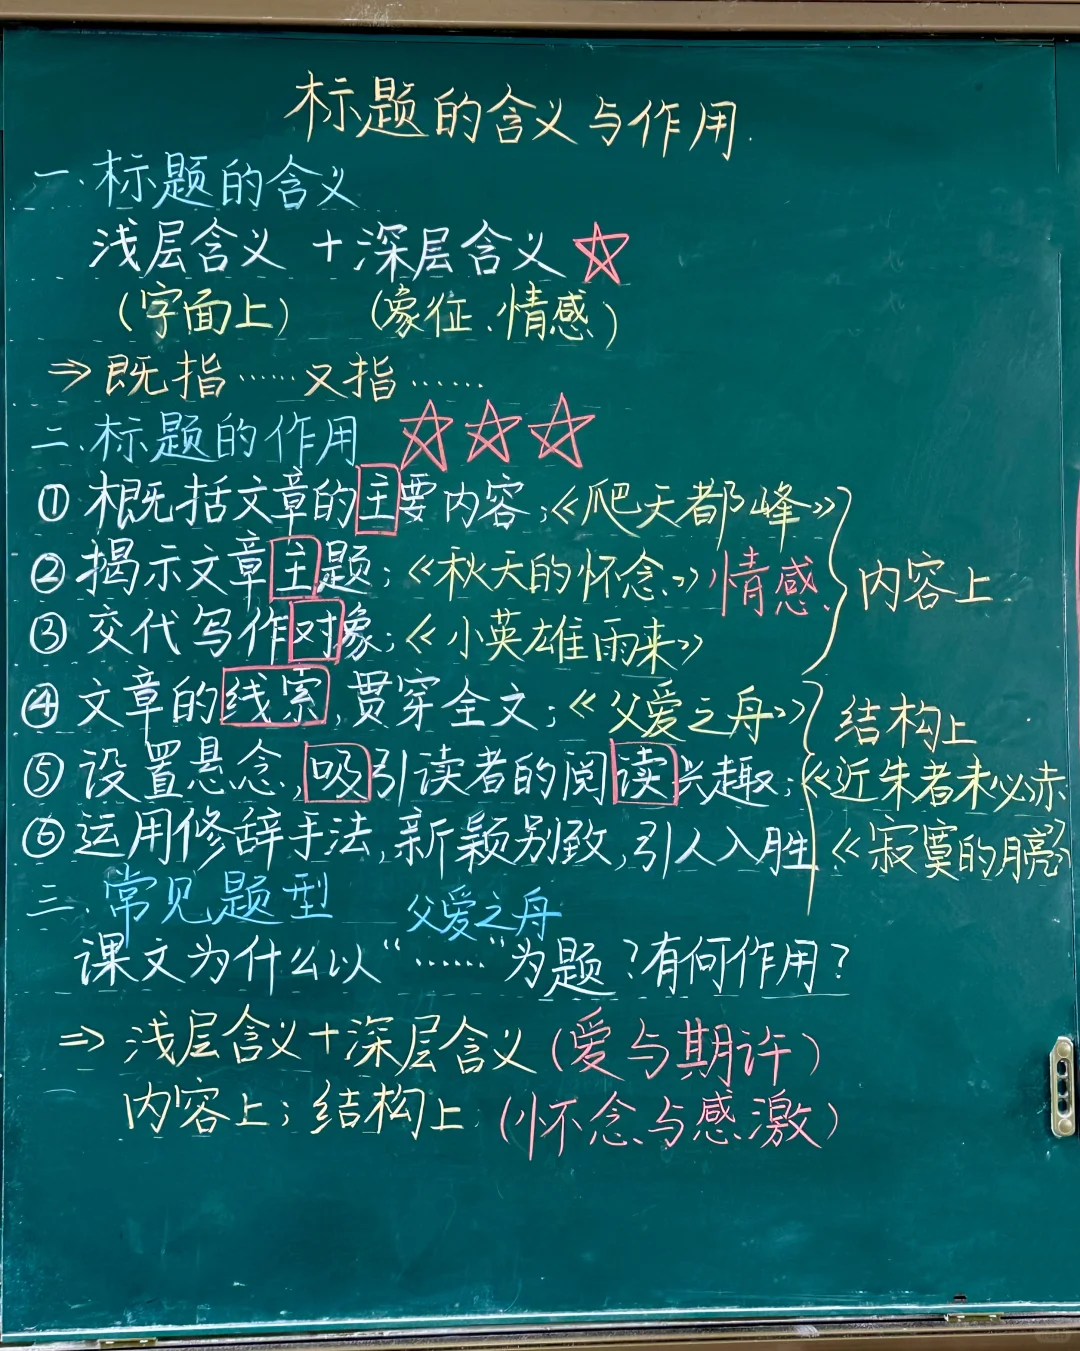 标题的含义与作用.
一.标题的含义
浅层含义 + 深层含义 ☆
(字面上) (象征、情感)
⇒ 既指……又指……
二.标题的作用 ☆☆☆
① 概括文章的主要内容;《爬天都峰》
② 揭示文章主题;《秋天的怀念》情感、 内容上.
③ 交代写作对象;《小英雄雨来》
④ 文章的线索,贯穿全文;《父爱之舟》 结构上
⑤ 设置悬念,吸引读者的阅读兴趣;《近朱者未必赤
⑥ 运用修辞手法,新颖别致,引人入胜《寂寞的
三.常见题型 父爱之舟
课文为什么以“……”为题?有何作用?
⇒ 浅层含义+深层含义 (爱与期许)
内容上;结构上 (怀念与感激)